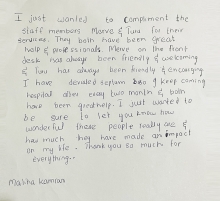 I just wanted to compliment the
staff members Merve & Tuni for their
services. They both have been great
help & professionals. Merve on the front
desk has always been friendly & welcoming
& Tuni has always been friendly & encouraging
I have detailed & keep coming
hospital after every two month & both
have been great help. I just wanted to
be sure to let you know how
wonderful these people really are &
how much they have made an impact
on my life. Thank you so much for
everything..
Maliha Kamran